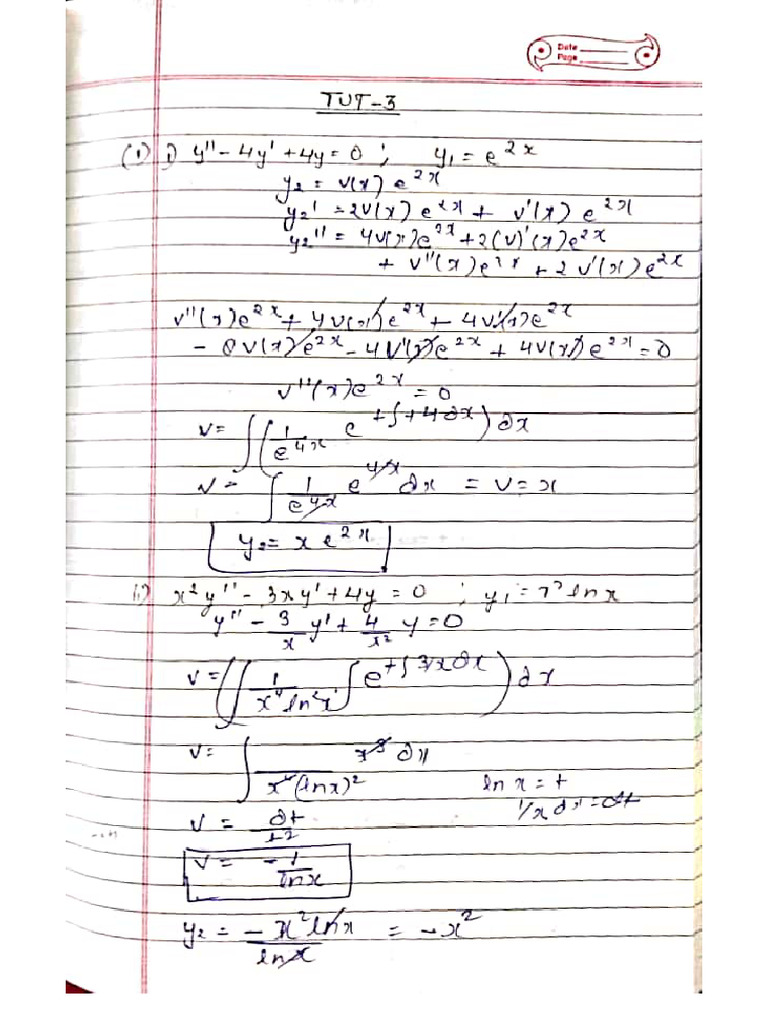 Date
Page
TUT-3
(1) i) y'' - 4y' + 4y = 0 ; y₁ = e^2x
y₂ = v(x) e^2x
y₂' = 2v(x) e^2x + v'(x) e^2x
y₂'' = 4v(x)e^2x + 2(v)'(x)e^2x
+ v''(x)e^2x + 2v'(x)e^2x
v''(x)e^2x + 4v(x)e^2x + 4v'(x)e^2x
- 8v(x)e^2x - 4v'(x)e^2x + 4v(x)e^2x = 0
v''(x)e^2x = 0
v = ∫(1/e^4x e^+∫+4dx) dx
v = ∫ 1/e^4x e^4x dx = v = x
y₂ = x e^2x
ii) x²y'' - 3xy' + 4y = 0 ; y₁ = x² ln x
y'' - 3/x y' + 4/x² y = 0
v = (∫ 1/x⁴ln²x ∫ e^+∫3/x dx) dx
v = ∫ x³ dx / x⁴(ln x)²
ln x = t
1/x dx = dt
v = dt/t²
v = - 1/ln x
y₂ = - x² ln x / ln x = - x²